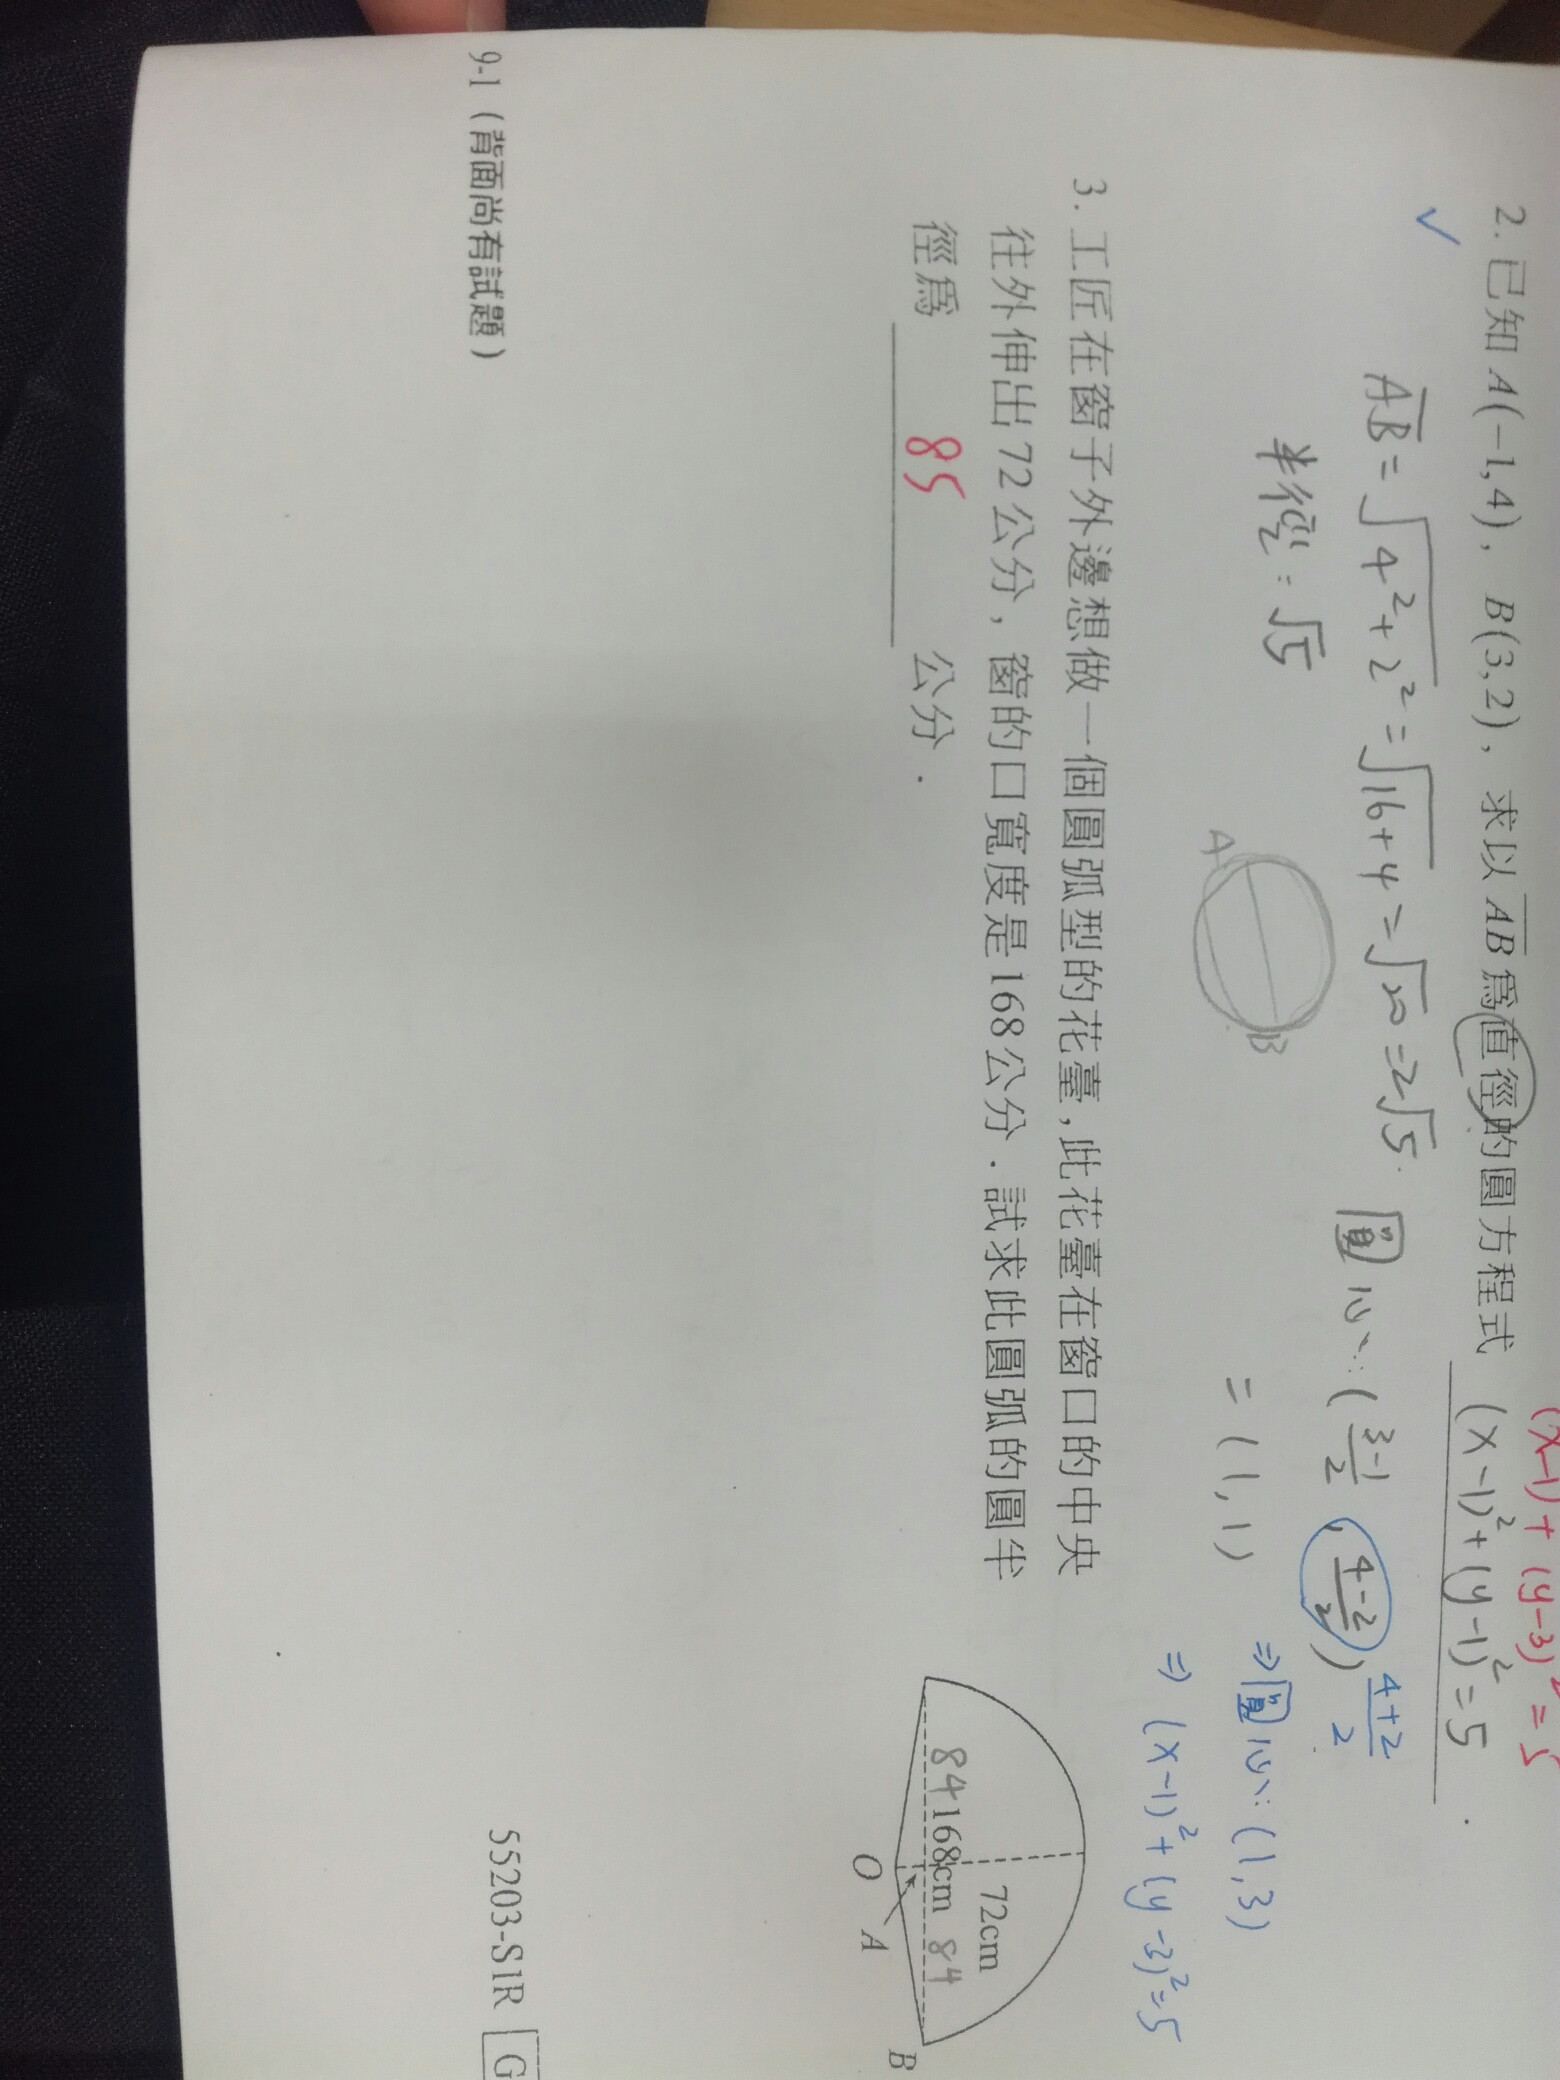 (x-1)²+(y-3)²=5
2. 已知A(-1,4)，B(3,2)，求以AB爲直徑的圓方程式 (x-1)²+(y-1)²=5．
AB=√4²+2²=√16+4=√20=2√5 圓心:(3-1/2, 4-2/2) 4+2/2
半徑:√5
=(1,1) ⇒圓心:(1,3)
⇒(x-1)²+(y-3)²=5
A
B
3. 工匠在窗子外邊想做一個圓弧型的花臺，此花臺在窗口的中央
往外伸出72公分，窗的口寬度是168公分．試求此圓弧的圓半
徑爲 85 公分．
72cm
84 168cm 84
O
A
B
9-1（背面尚有試題）
55203-S1R G